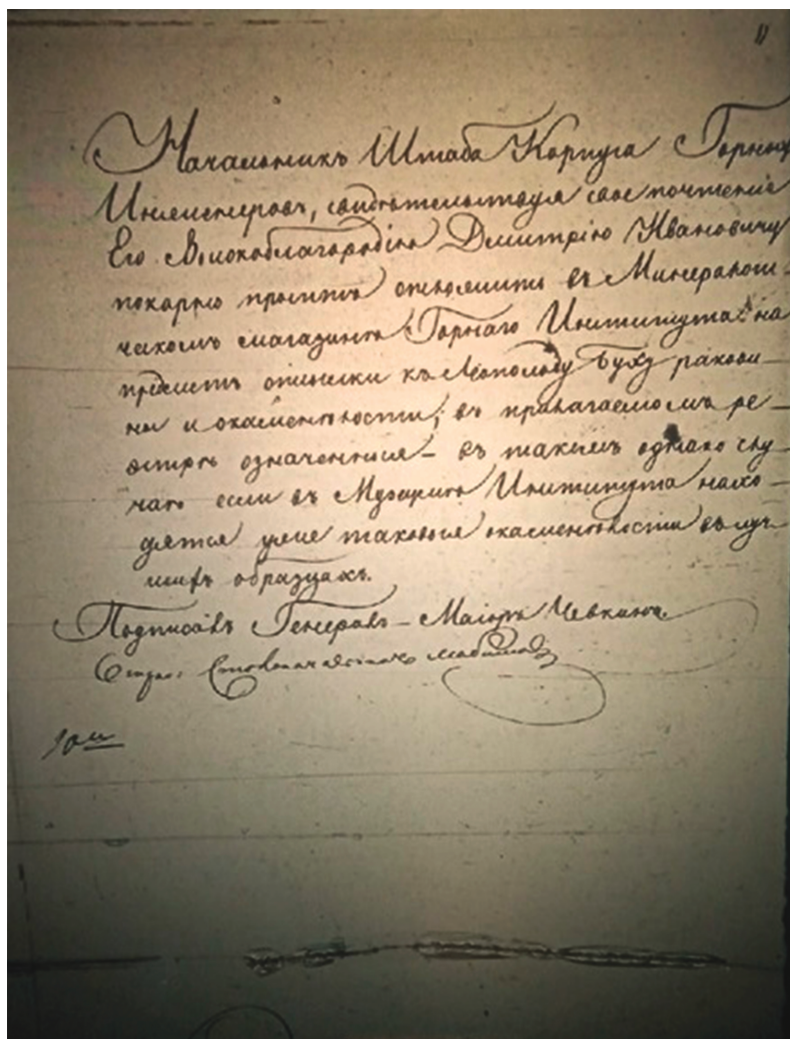 11
Начальникъ Штаба Корпуса Горныхъ
Инженеровъ, свидѣтельствуя свое почтеніе
Его Высокоблагородію Дмитрію Ивановичу
покорно проситъ отложить въ Минералоги-
ческомъ магазинѣ Горнаго Института на
предметъ отсылки къ Леопольду Буху ракови-
ны и окаменѣлости, въ прилагаемомъ ре-
естрѣ означенныя – въ такомъ однако слу-
чаѣ если въ Музеумѣ Института нахо-
дятся уже таковыя окаменѣлости въ луч-
шихъ образцахъ.
Подписалъ Генералъ-Маіоръ Чевкинъ.